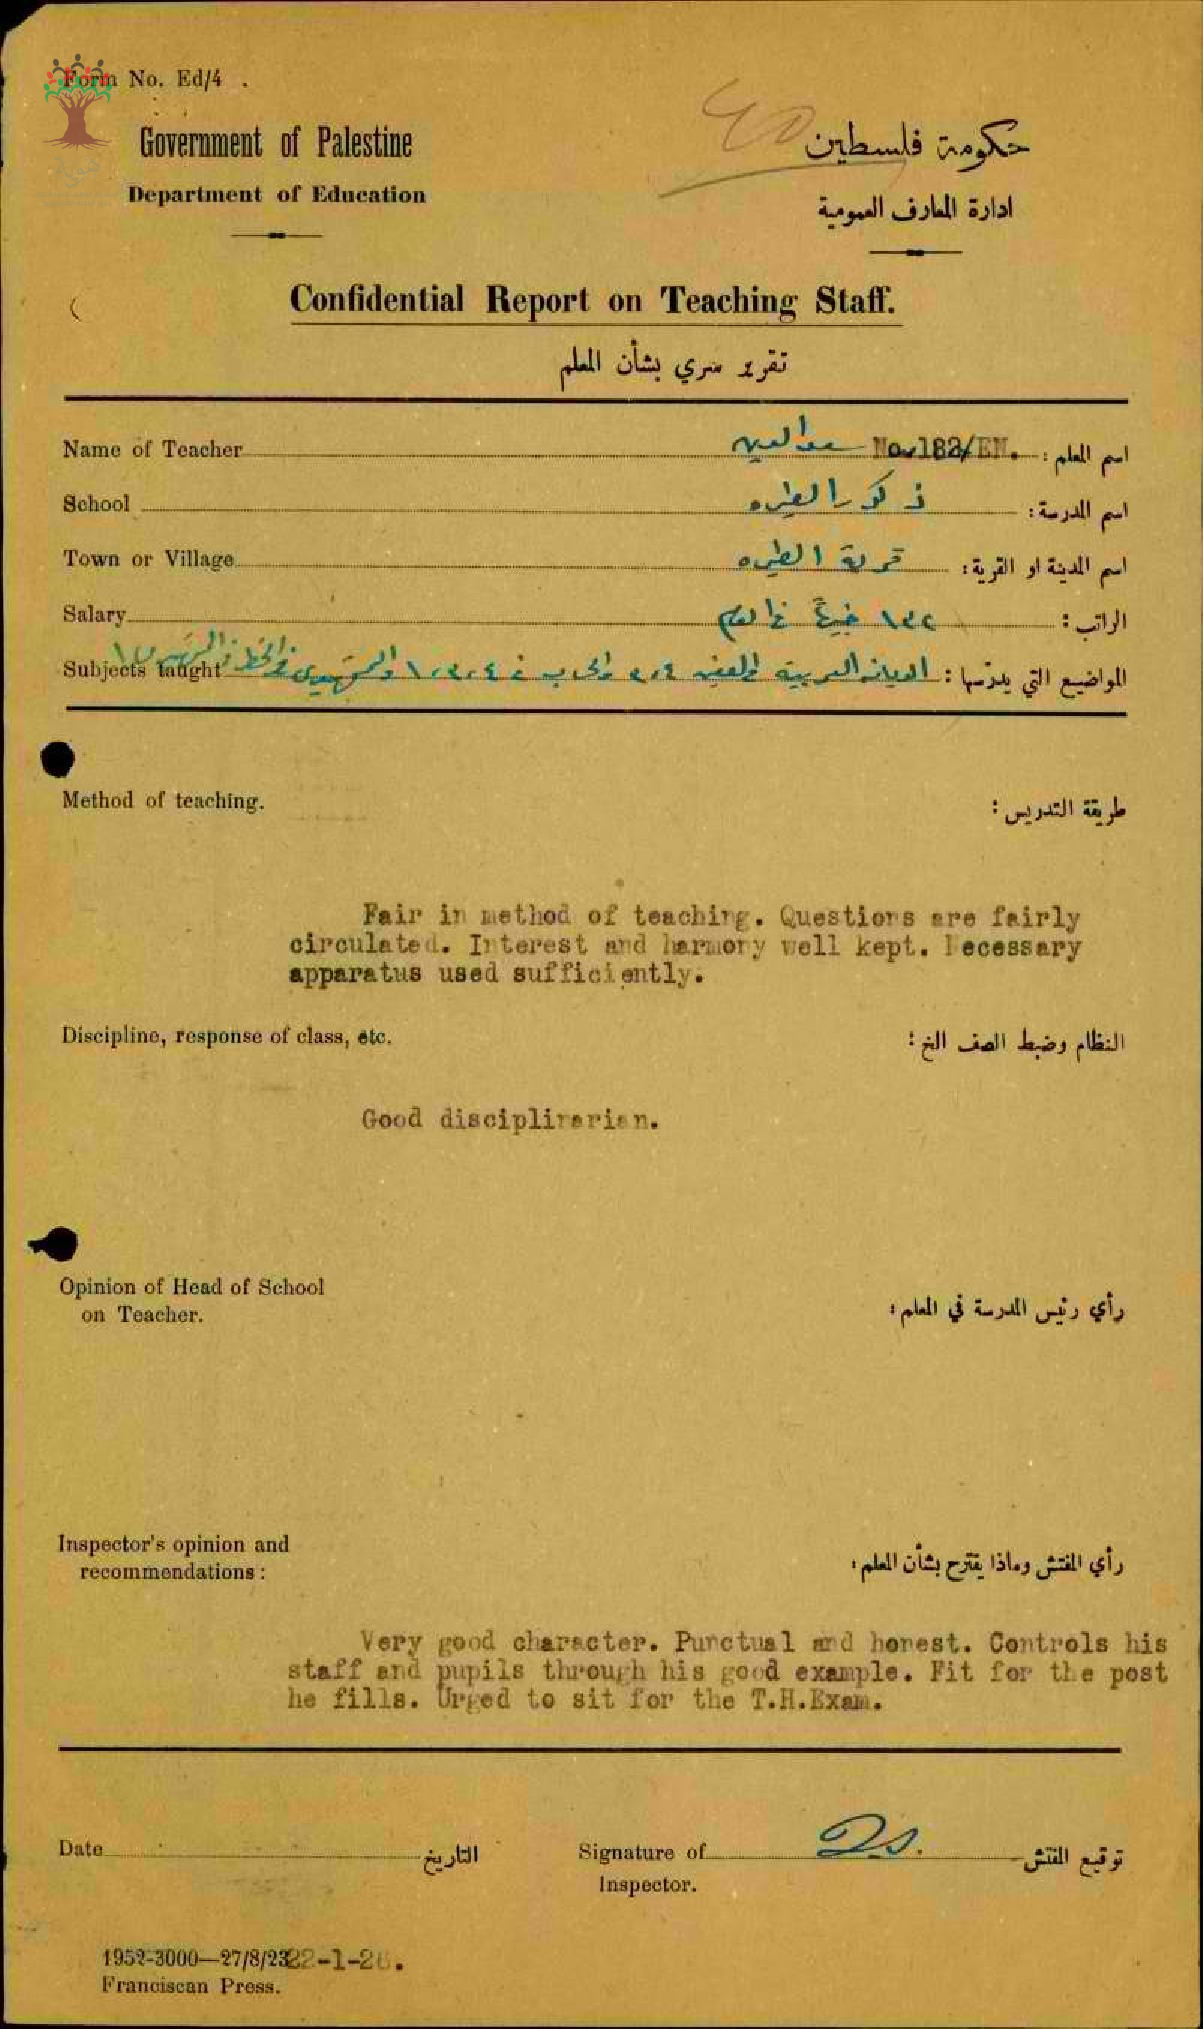 Form No. Ed/4 .
Government of Palestine
حكومة فلسطين
Department of Education
ادارة المعارف العمومية
Confidential Report on Teaching Staff.
تقرير سري بشأن المعلم
Name of Teacher No.182/EN. اسم المعلم :
School ذكور الطيره اسم المدرسة :
Town or Village قرية الطيره اسم المدينة او القرية :
Salary ١٣٢ جنيهًا في العام الراتب :
Subjects taught المواضيع التي يدرّسها :
Method of teaching. طريقة التدريس :
Fair in method of teaching. Questions are fairly
circulated. Interest and harmony well kept. Necessary
apparatus used sufficiently.
Discipline, response of class, etc. النظام وضبط الصف الخ :
Good disciplinarian.
Opinion of Head of School
on Teacher.
رأي رئيس المدرسة في المعلم :
Inspector's opinion and
recommendations :
رأي المفتش وماذا يقترح بشأن المعلم :
Very good character. Punctual and honest. Controls his
staff and pupils through his good example. Fit for the post
he fills. Urged to sit for the T.H.Exam.
Date التاريخ Signature of توقيع المفتش
Inspector.
1952-3000—27/8/23 22-1-26.
Franciscan Press.